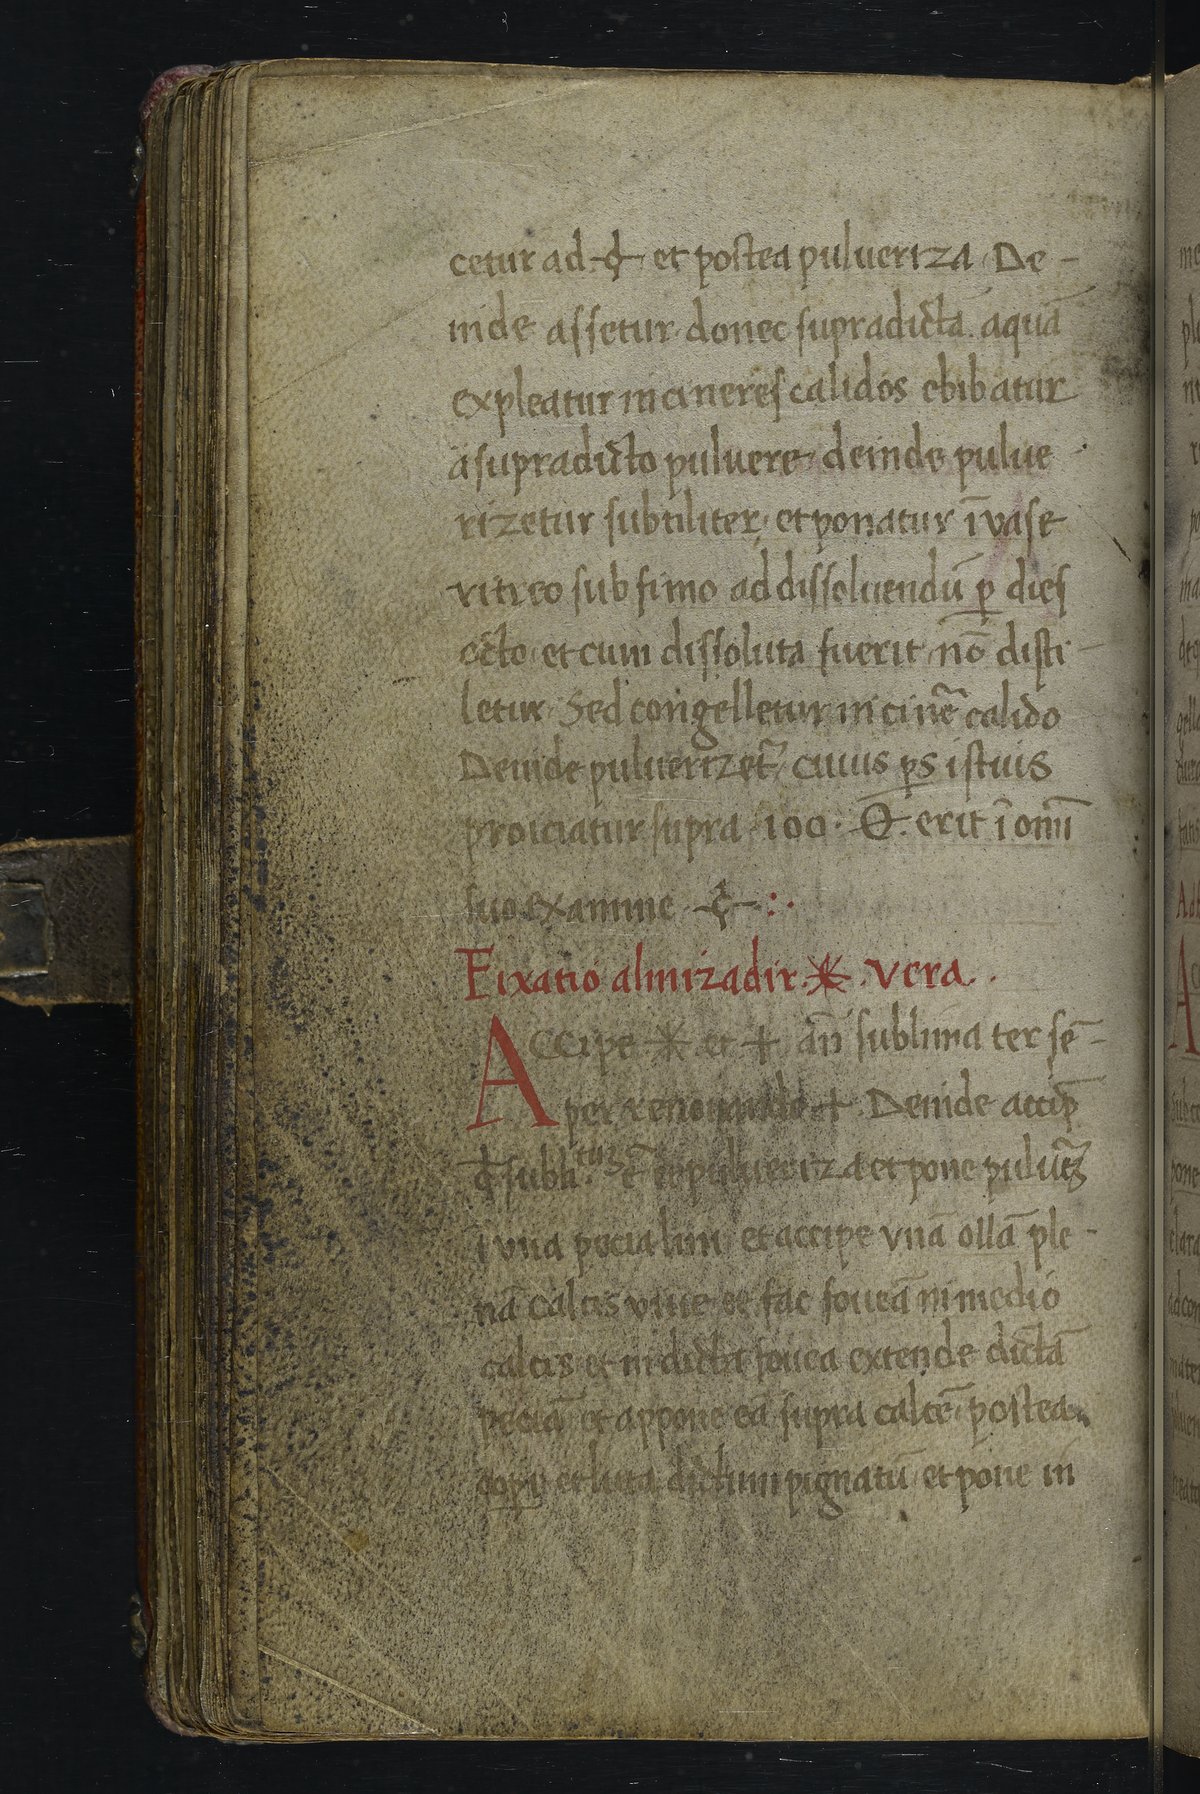 cetur ad et postea pulueriza De-
inde assetur donec supradictā aquā
expleatur in cineres calidos ebibatur
a supradicto puluere deinde pulue
rizetur subtiliter, et ponatur ī vase
vitreo sub fimo ad dissoluendū ꝑ dies
octo et cum dissoluta fuerit nō disti-
letur Sed congelletur in cinēr calido
Deinde pulverizet̄ cuius ꝑs istuis
proiciatur supra · 100 · erit ī omī
suo examine
Fixatio almizadir. ✴ . vera .
Accipe ✴ et + añ sublima ter sē-
per renouando +. Deinde accip̄
et pulueriza et pone
ī vna pecia lini et accipe vnā ollā ple-
nā calcis viue et fac foueā in medio
calcis et in dicta fouea extende dictā
peciā et appone eā supra calcē postea
coꝑi et luta dictum pignatū et pone in